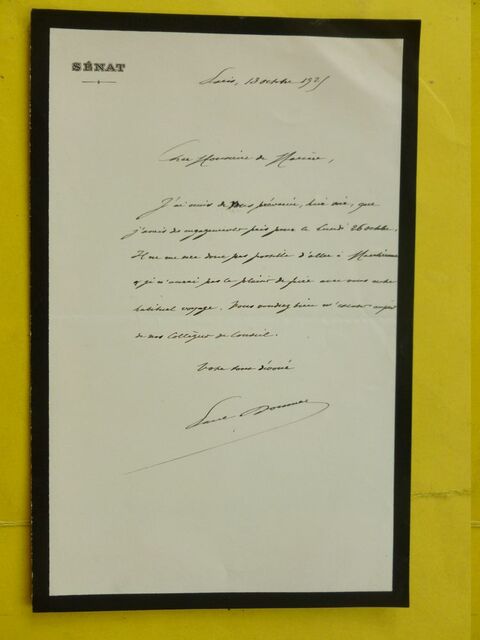 SÉNAT
Paris, 13 octobre 1925
Cher Monsieur de Marcère,
J'ai omis de vous prévenir, hier soir, que
j'avais des engagements pris pour le Lundi 26 octobre.
Il ne me sera donc pas possible d'aller à
et je n'aurai pas le plaisir de faire avec vous notre
habituel voyage. Vous voudrez bien m'excuser auprès
de nos Collègues du Conseil.
Votre tout dévoué
Paul Doumer